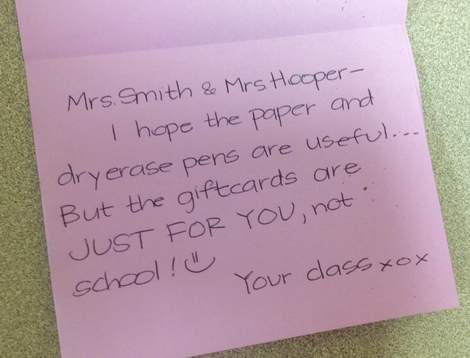 Mrs. Smith & Mrs. Hooper -
I hope the paper and
dryerase pens are useful....
But the giftcards are
JUST FOR YOU, not
school! :)
Your class xox